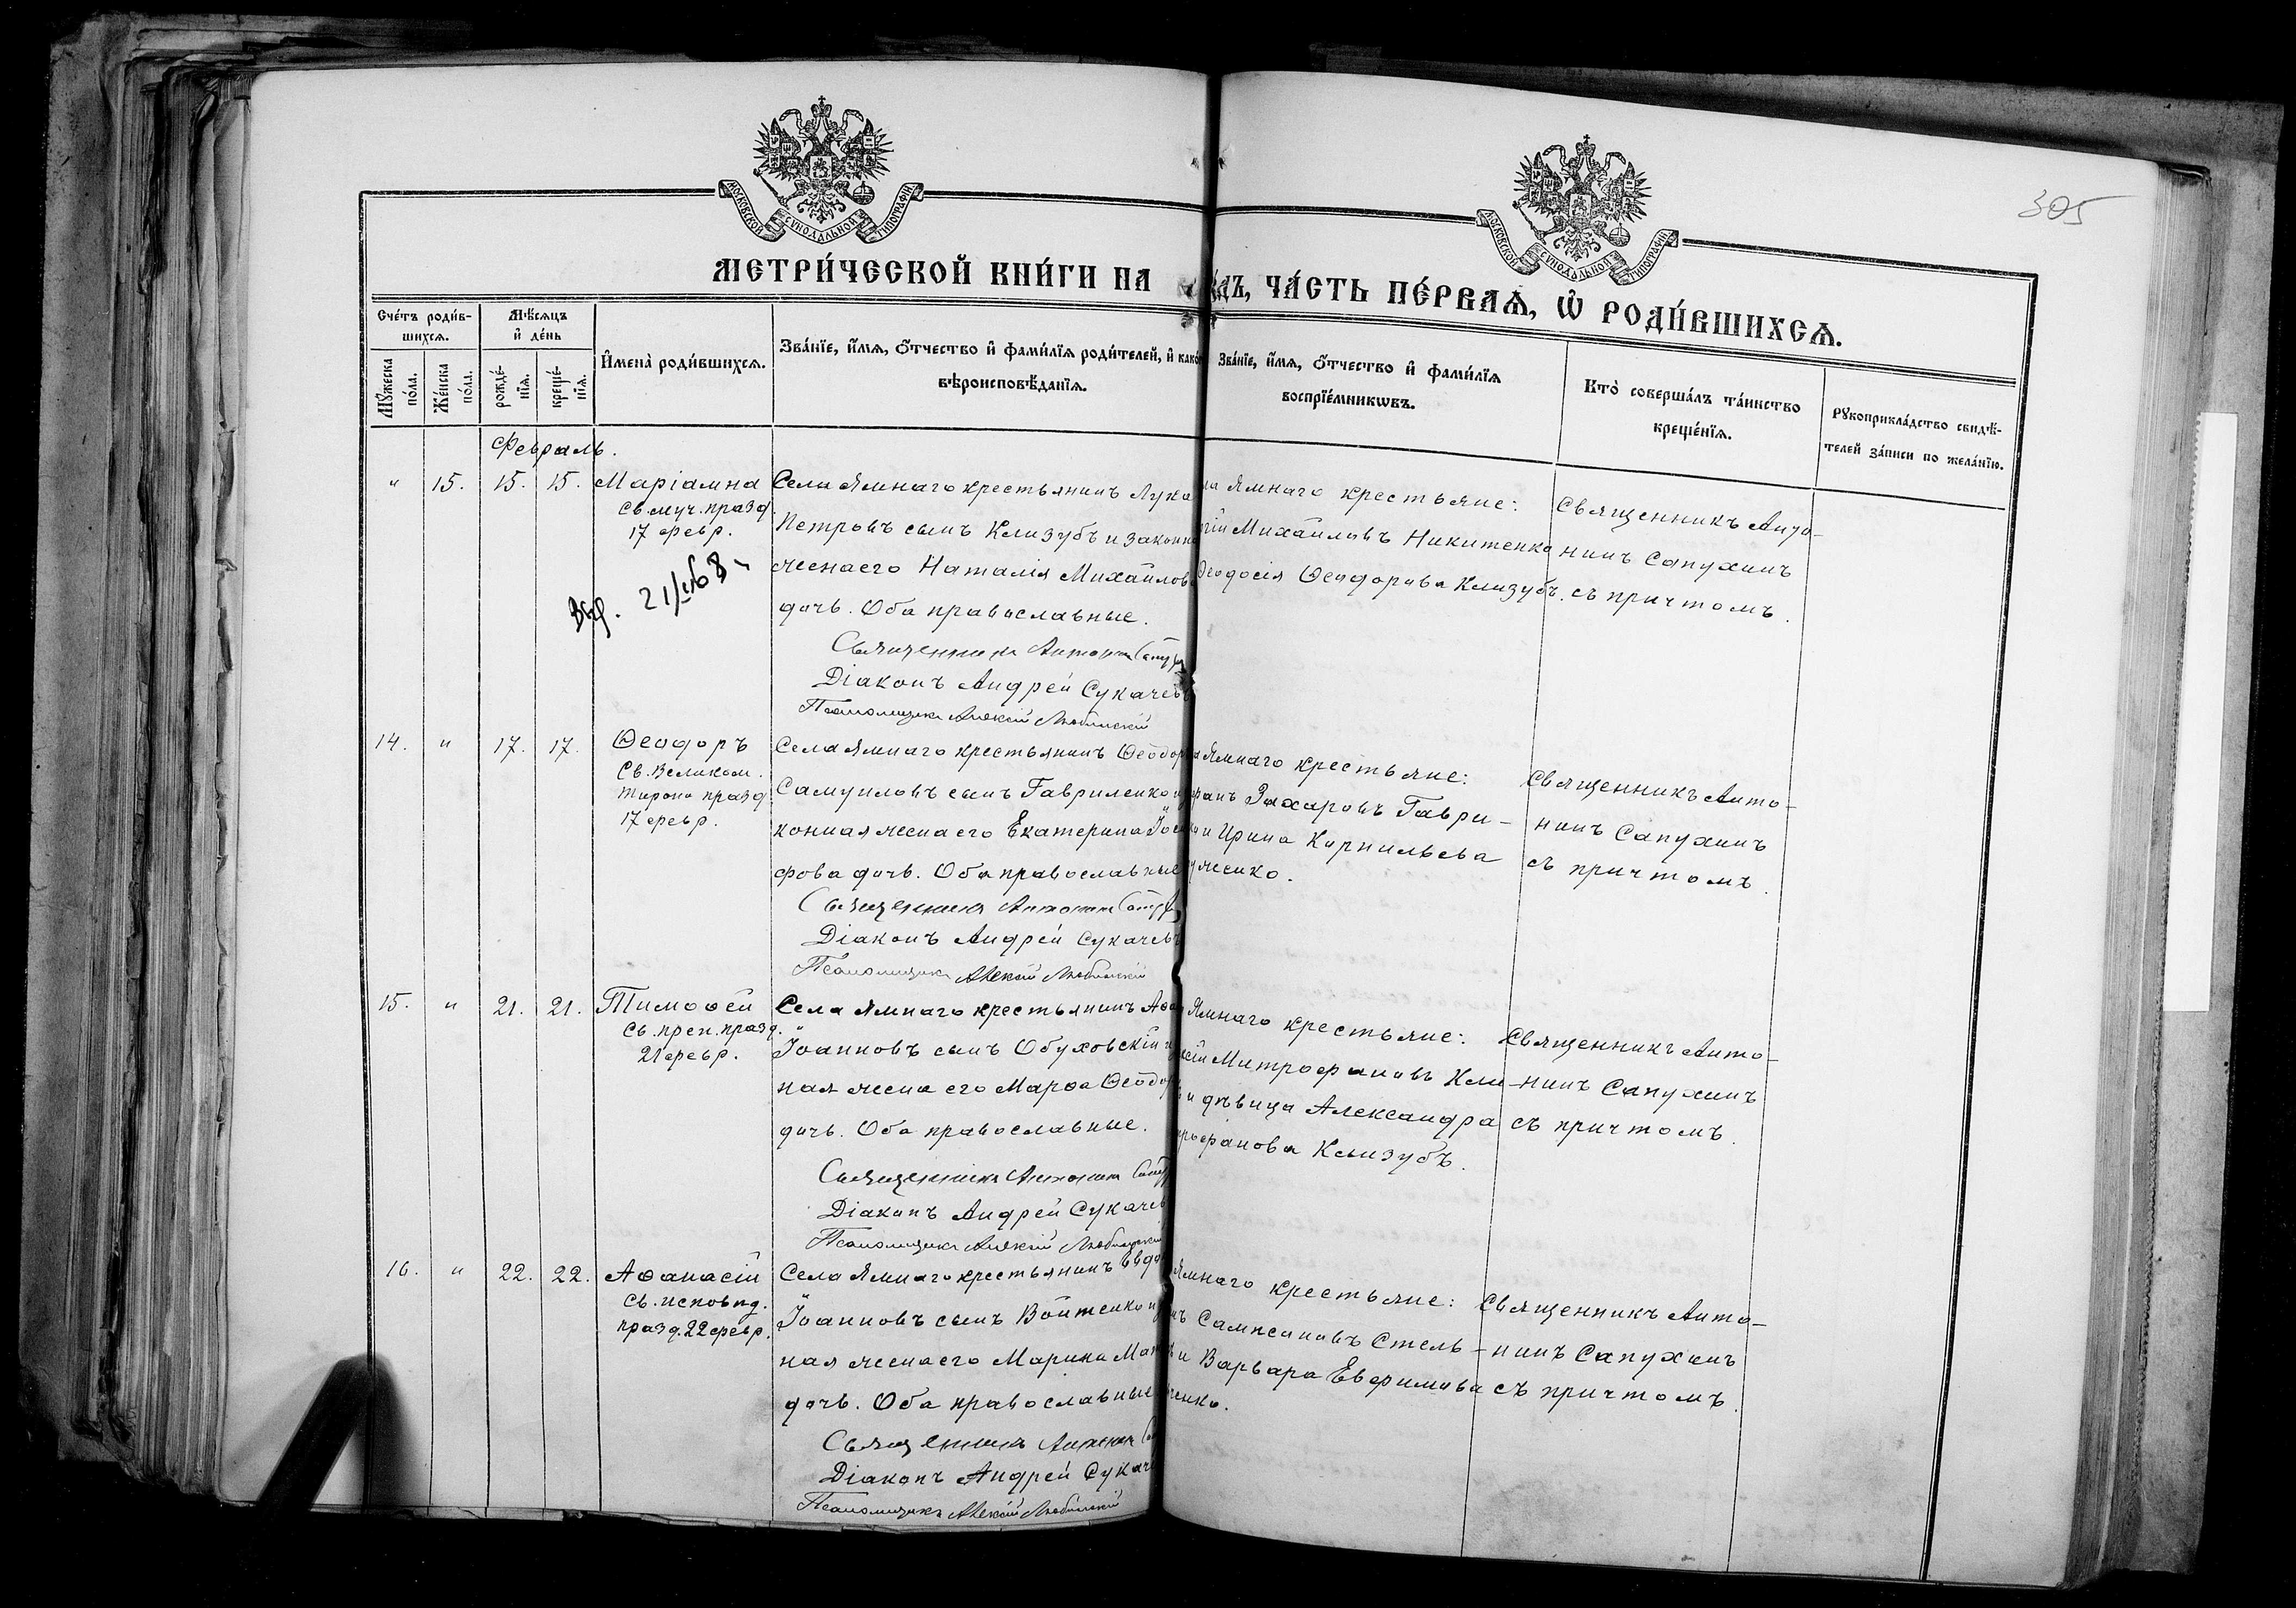 305
МОСКОВСКОЙ СѴНОДАЛЬНОЙ ТИПОГРАФІИ
МОСКОВСКОЙ СѴНОДАЛЬНОЙ ТИПОГРАФІИ
МЕТРИ́ЧЕСКОЙ КНИ́ГИ НА
ЧА́СТЬ ПЕ́РВАѦ, Ѽ РОДИ́ВШИХСѦ.
Сче́тъ роди́в-
шихсѧ.
Мꙋ́жеска по́ла.
Же́нска по́ла.
Мѣ́сѧцъ
и҆ де́нь
рожде́-
нїѧ.
креще́-
нїѧ.
И҆мена̀ роди́вшихсѧ.
Зва́нїе, и҆́мѧ, ѻ҆́тчество и҆ фами́лїѧ роди́телей, и҆ како́
вѣроисповѣ́данїѧ.
Зва́нїе, и҆́мѧ, ѻ҆́тчество и҆ фами́лїѧ
воспрїе́мникѡвъ.
Кто̀ соверша́лъ та́инство
креще́нїѧ.
Рꙋкоприкла́дство свидѣ́-
телей за́писи по жела́нїю.
Февраль.
" 15. 15. 15. Маріамна
Св. муч. празд.
17 февр.
Села Ямнаго крестьянинъ Лука
Петровъ сынъ Клизубъ и законн
жена его Наталія Михайлов
дочь. Оба православные.
Священникъ Антонинъ
Діаконъ Андрей Сукачевъ
Псаломщикъ Алексій
Ямнаго крестьяне:
Михайловъ Никитенко
Ѳеодосія Ѳеодорова Клизубъ.
Священникъ Анто-
нинъ Сапухинъ
съ причтомъ.
14. " 17. 17. Ѳеодоръ
Св. Великом.
Тирона празд.
17 февр.
Села Ямнаго крестьянинъ Ѳеодор
Самуиловъ сынъ Гавриленко и
конная жена его Екатерина Іоси
фова дочь. Оба православные
Священникъ Антонинъ
Діаконъ Андрей Сукачевъ
Псаломщикъ Алексій
Ямнаго крестьяне:
Захаровъ Гаври-
и Ирина Корнильева
женко.
Священникъ Анто-
нинъ Сапухинъ
съ причтомъ.
15. " 21. 21. Тимоѳей
Св. преп. празд.
21 февр.
Села Ямнаго крестьянинъ
Іоанновъ сынъ Обуховскій и
ная жена его Марѳа Ѳеодор
дочь. Оба православные.
Священникъ Антонинъ
Діаконъ Андрей Сукачев
Псаломщикъ Алексій
Ямнаго крестьяне:
Митрофановъ Кли-
и дѣвица Александра
трофанова Клизубъ.
Священникъ Анто-
нинъ Сапухинъ
съ причтомъ.
16. " 22. 22. Аѳанасій
Св. исповѣд.
празд. 22 февр.
Села Ямнаго крестьянинъ
Іоанновъ сынъ Войтенко и
ная жена его Марина
дочь. Оба православные
Священникъ Антонинъ
Діаконъ Андрей Сукач
Псаломщикъ Алексій
Ямнаго крестьяне:
Сампсоновъ Стель-
и Варвара Евфимова
енко.
Священникъ Анто-
нинъ Сапухинъ
съ причтомъ.